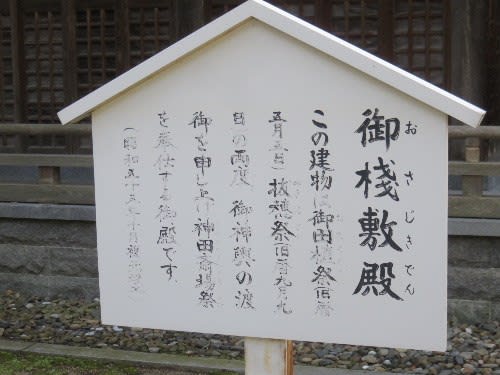 御棧敷殿
おさじきでん
この建物は御田植祭(旧暦
五月五日)抜穂祭(旧暦九月九
日)の両度 御神輿の渡
御を申し 神田斎場祭
を奉仕する御殿です。
(昭和五十五年十月